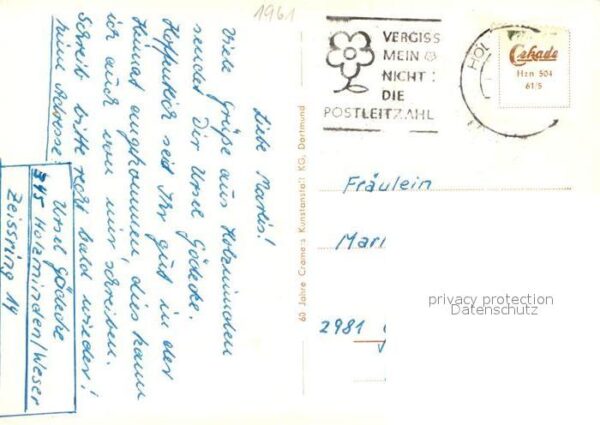 1961
Liebe Marlis!
Viele Grüße aus Holzminden
sendet Dir Ursel Gödecke.
Hoffentlich seid Ihr gut in der
Heimat angekommen, dies kann
ich auch von mir schreiben.
Schreib bitte recht bald wieder!
Meine Adresse
Ursel Gödecke
345 Holzminden/Weser
Zeissring 14
60 Jahre Cramers Kunstanstalt KG, Dortmund
VERGISS
MEIN
NICHT:
DIE
POSTLEITZAHL
HOL
Cekade
Hzn 504
61/5
Fräulein
Mari
2981
privacy protection
Datenschutz